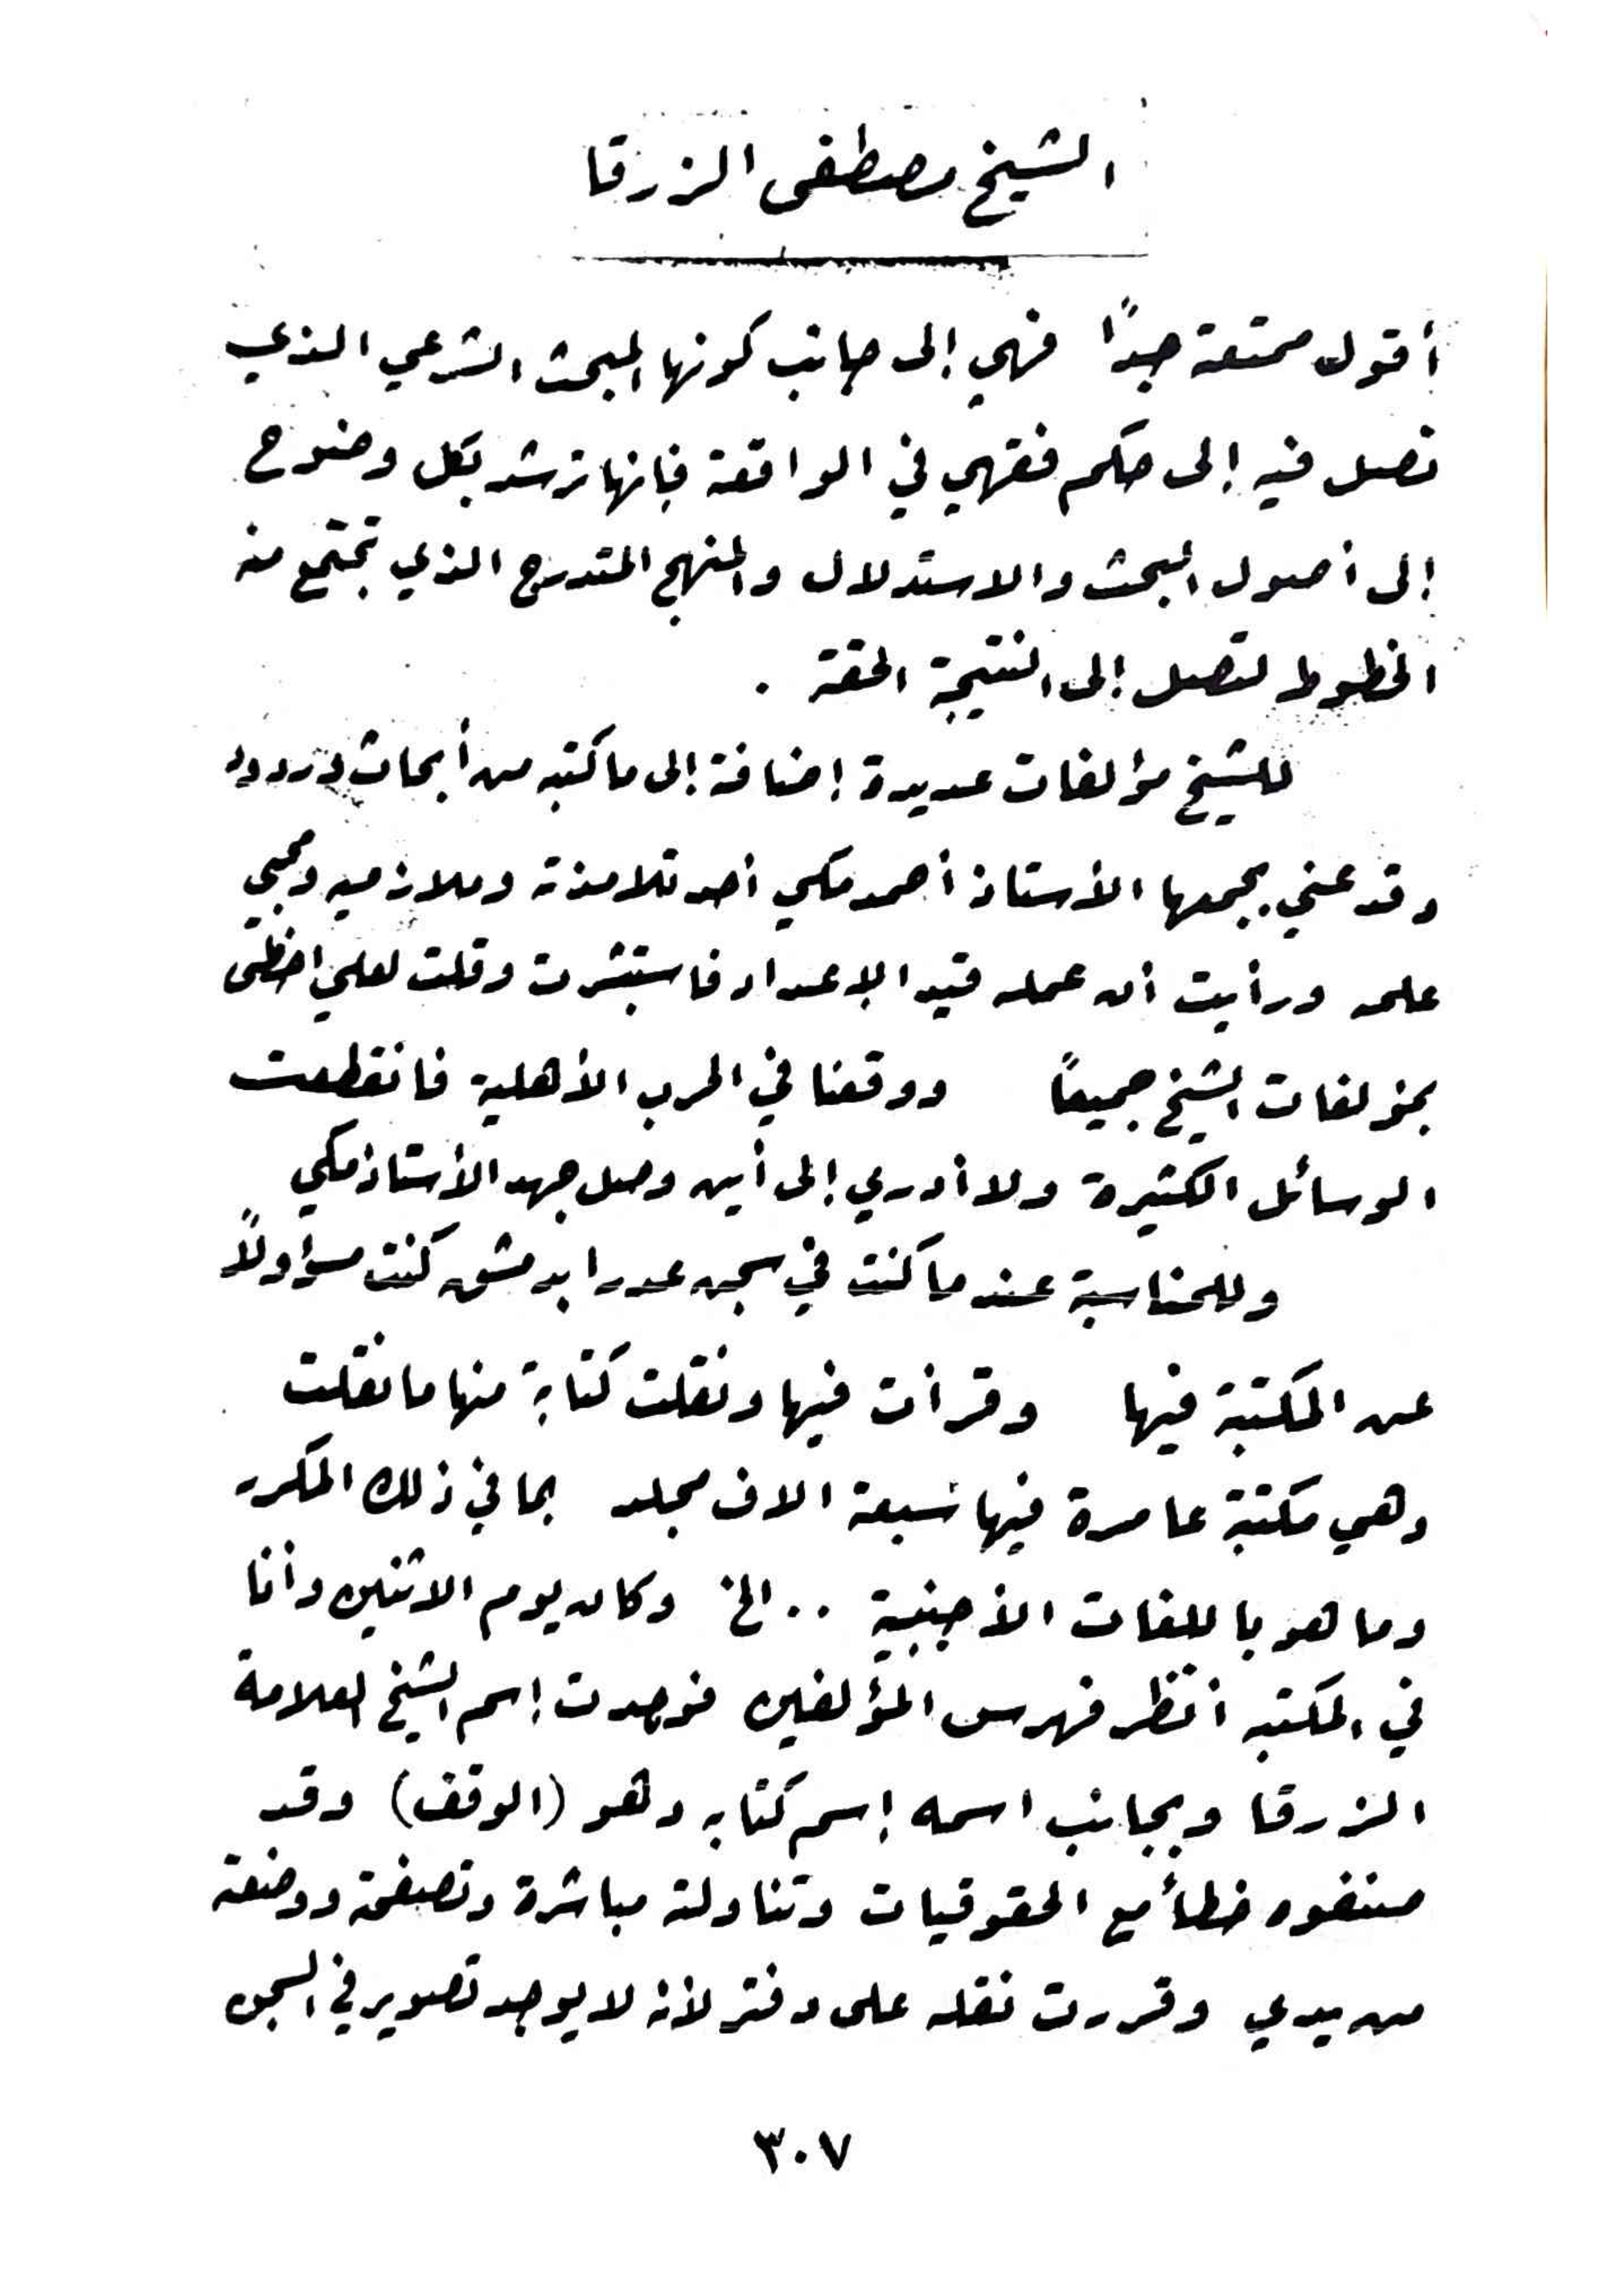 الشيخ مصطفى الزرقا
أقول ممتعة جدًا فهي إلى جانب كونها المبحث الشرعي الذي
تصل فيه إلى حكم فقهي في الواقعة فإنها ترشد بكل وضوح
إلى أصول البحث والاستدلال والمنهج المتدرج الذي تجتمع منه
الخطوط لتصل إلى النتيجة الحقة .
للشيخ مؤلفات عديدة إضافة إلى ما كتبه من أبحاث وردود
وقد عني بجمعها الأستاذ أحمد مكي أحد تلامذته وملازميه ومحبي
علمه ورأيت أن عمله قيد الإعداد فاستبشرت وقلت لعلي احظى
بمؤلفات الشيخ جميعاً ووقعنا في الحرب الأهلية فانقطعت
الوسائل الكثيرة ولا أدري إلى أين وصل جهد الأستاذ مكي
وللمناسبة عندما كنت في سجن عدرا بدمشق كنت مسؤاولاً
عن المكتبة فيها وقرأت فيها ونقلت كتابة منها ما نقلت
وهي مكتبة عامرة فيها سبعة الاف مجلد بما في ذلك المكرر
وما هو باللغات الأجنبية .. الخ وكان يوم الاثنين وأنا
في المكتبه انظر فهرس المؤلفين فوجدت إسم الشيخ العلامة
الزرقا وبجانب اسمه إسم كتابه وهو (الوقف) وقد
صنفوه خطأ مع الحقوقيات وتناولته مباشرة وتصفحته ووضعته
من يدي وقررت نقله على دفتر لأنه لا يوجد تصوير في السجن
٣٠٧